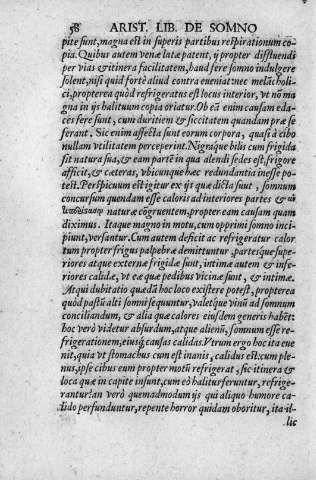 58 ARIST. LIB. DE SOMNO
pite sunt, magna est in superis partibus respirationum co-
pia. Quibus autem venæ latæ patent, ij propter diffluendi
per vias & itinera facilitatem, haud sere somno indulgere
solent, nisi quid fortè aliud contra eueniat nec melãcholi-
ci, propterea quòd refrigeratus est locus interior, vt nõ ma
gna in ijs halituum copia oriatur. Ob eã enim causam eda-
ces sere sunt, cum duritiem & siccitatem quandam præ se
serant. Sic enim affecta sunt eorum corpora, quasi à cibo
nullam vtilitatem perceperint. Nigráque bilis cum frigida
sit natura sua, & eam partẽ in qua alendi sedes est, frigore
afficit, & cæteras, vbicunque hæc redundantia inesse po-
test. Perspicuum est igitur ex ijs quæ dicta sunt, somnum
concursum quendam esse caloris ad interiores partes &
naturæ cõgruentem, propter eam causam quam
diximus. Itaque magno in motu, cum opprimi somno inci-
piunt, versantur. Cum autem deficit ac refrigeratur calor
tum propter frigus palpebræ demittuntur, partésque supe-
riores atque externæ frigidæ sunt, intimæ autem & infe-
riores calidæ, vt eæ quæ pedibus vicinæ sunt, & intimæ.
Atqui dubitatio quædã hoc loco existere potest, propterea
quòd pastũ alti somni sequuntur, valetque vinũ ad somnum
conciliandum, & alia quæ calores eiusdem generis habẽt:
hoc verò videtur absurdum, atque alienũ, somnum esse re-
frigerationem, eiusq́; causas calidas. Vtrum ergo hoc ita eue
nit, quia vt stomachus cum est inanis, calidus est: cum ple-
nus, ipse cibus eum propter motũ refrigerat, sic itinera &
loca quæ in capite insunt, cum eò halitus feruntur, refrige-
rantur? an verò quemadmodum ijs qui aliquo humore ca-
lido perfunduntur, repente horror quidam oboritur, ita il-
lic